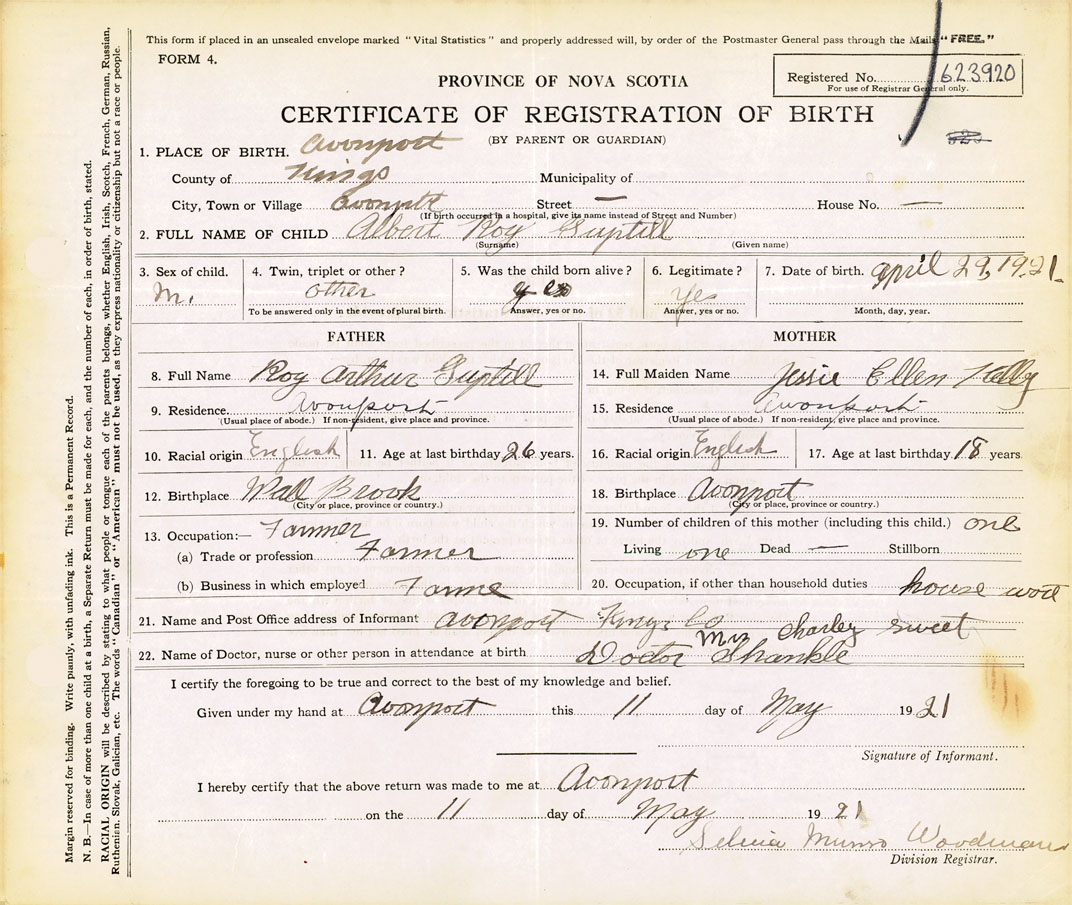 This form if placed in an unsealed envelope marked "Vital Statistics" and properly addressed will, by order of the Postmaster General pass through the Mails "FREE."
FORM 4.
PROVINCE OF NOVA SCOTIA
Registered No. 623920
For use of Registrar General only.
CERTIFICATE OF REGISTRATION OF BIRTH
(BY PARENT OR GUARDIAN)
1. PLACE OF BIRTH. Avonport
County of Kings Municipality of
City, Town or Village Avonport Street — House No. —
(If birth occurred in a hospital, give its name instead of Street and Number)
2. FULL NAME OF CHILD Albert Roy Guptill
(Surname) (Given name)
3. Sex of child. 4. Twin, triplet or other? 5. Was the child born alive? 6. Legitimate? 7. Date of birth. April 29, 1921
M. other yes Yes
To be answered only in the event of plural birth. Answer, yes or no. Answer, yes or no. Month, day, year.
FATHER
8. Full Name Roy Arthur Guptill
9. Residence. Avonport
(Usual place of abode.) If non-resident, give place and province.
10. Racial origin English 11. Age at last birthday 26 years.
12. Birthplace Wall Brook
(City or place, province or country.)
13. Occupation:— Farmer
(a) Trade or profession Farmer
(b) Business in which employed Farme
MOTHER
14. Full Maiden Name Jessie Ellen Kelly
15. Residence Avonport
(Usual place of abode.) If non-resident, give place and province.
16. Racial origin English 17. Age at last birthday 18 years
18. Birthplace Avonport
(City or place, province or country.)
19. Number of children of this mother (including this child.) one
Living one Dead — Stillborn
20. Occupation, if other than household duties house work
21. Name and Post Office address of Informant Avonport Kings Co Mrs Charley Sweet
22. Name of Doctor, nurse or other person in attendance at birth. Doctor Shankle
I certify the foregoing to be true and correct to the best of my knowledge and belief.
Given under my hand at Avonport this 11 day of May 1921
Signature of Informant.
I hereby certify that the above return was made to me at Avonport
on the 11 day of May 1921
Munro Woodman
Division Registrar.
Margin reserved for binding. Write plainly, with unfading ink. This is a Permanent Record.
N. B.—In case of more than one child at a birth, a Separate Return must be made for each, and the number of each, in order of birth, stated.
RACIAL ORIGIN will be described by stating to what people or tongue each of the parents belongs, whether English, Irish, Scotch, French, German, Russian,
Ruthenian, Slovak, Galician, etc. The words "Canadian" or "American" must not be used, as they express nationality or citizenship but not a race or people.